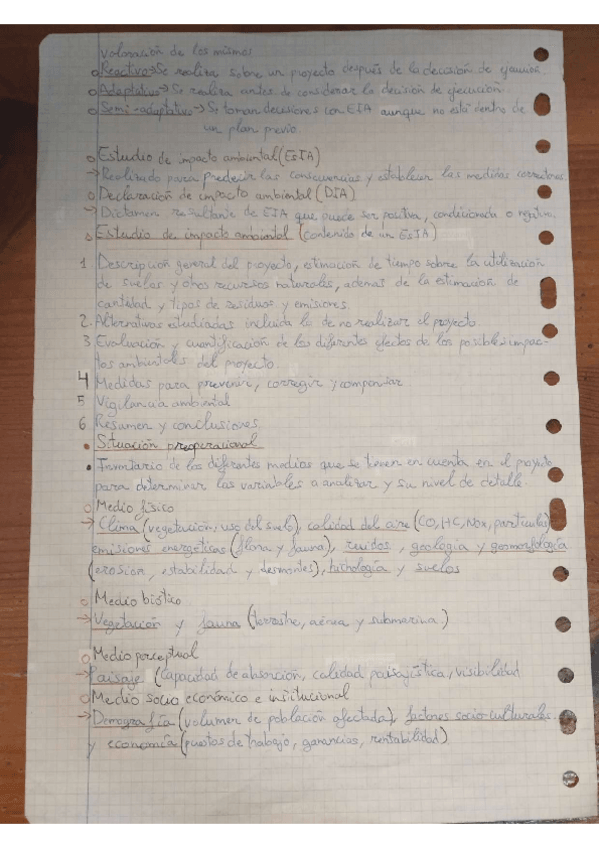 valoración de los mismos
o Reactivo → Se realiza sobre un proyecto después de la decisión de ejecución.
o Adaptativo → Se realiza antes de considerar la decisión de ejecución
o Semi-adaptativo → Se toman decisiones con EIA aunque no está dentro de
un plan previo.
o Estudio de impacto ambiental (EsIA)
→ Realizado para predecir las consecuencias y establecer las medidas correctoras.
o Declaración de impacto ambiental (DIA)
→ Dictamen resultante de EIA que puede ser positiva, condicionada o negativa.
o Estudio de impacto ambiental (contenido de un EsIA)
1 Descripción general del proyecto, estimación de tiempo sobre la utilización
de suelos y otros recursos naturales, ademas de la estimación de
cantidad y tipos de residuos y emisiones.
2. Alternativas estudiadas incluida la de no realizar el proyecto.
3 Evaluación y cuantificación de los diferentes efectos de los posibles impac-
tos ambientales del proyecto.
4 Medidas para prevenir, corregir y compensar
5 Vigilancia ambiental
6 Resumen y conclusiones
• Situación preoperacional
• Inventario de los diferentes medios que se tienen en cuenta en el proyecto
para determinar las variables a analizar y su nivel de detalle.
o Medio físico
→ Clima (vegetación, uso del suelo), calidad del aire (CO, HC, NOx, partículas)
emisiones energéticas (flora y fauna), ruidos, geología y geomorfología
(erosión, estabilidad y desmontes), hidrología y suelos
o Medio biótico
→ Vegetación y fauna (terrestre, aérea y submarina)
o Medio perceptual
→ Paisaje (capacidad de absorción, calidad paisajística, visibilidad
o Medio socio económico e institucional
→ Demografía (volumen de población afectada), factores socio-culturales
y economía (puestos de trabajo, ganancias, rentabilidad)